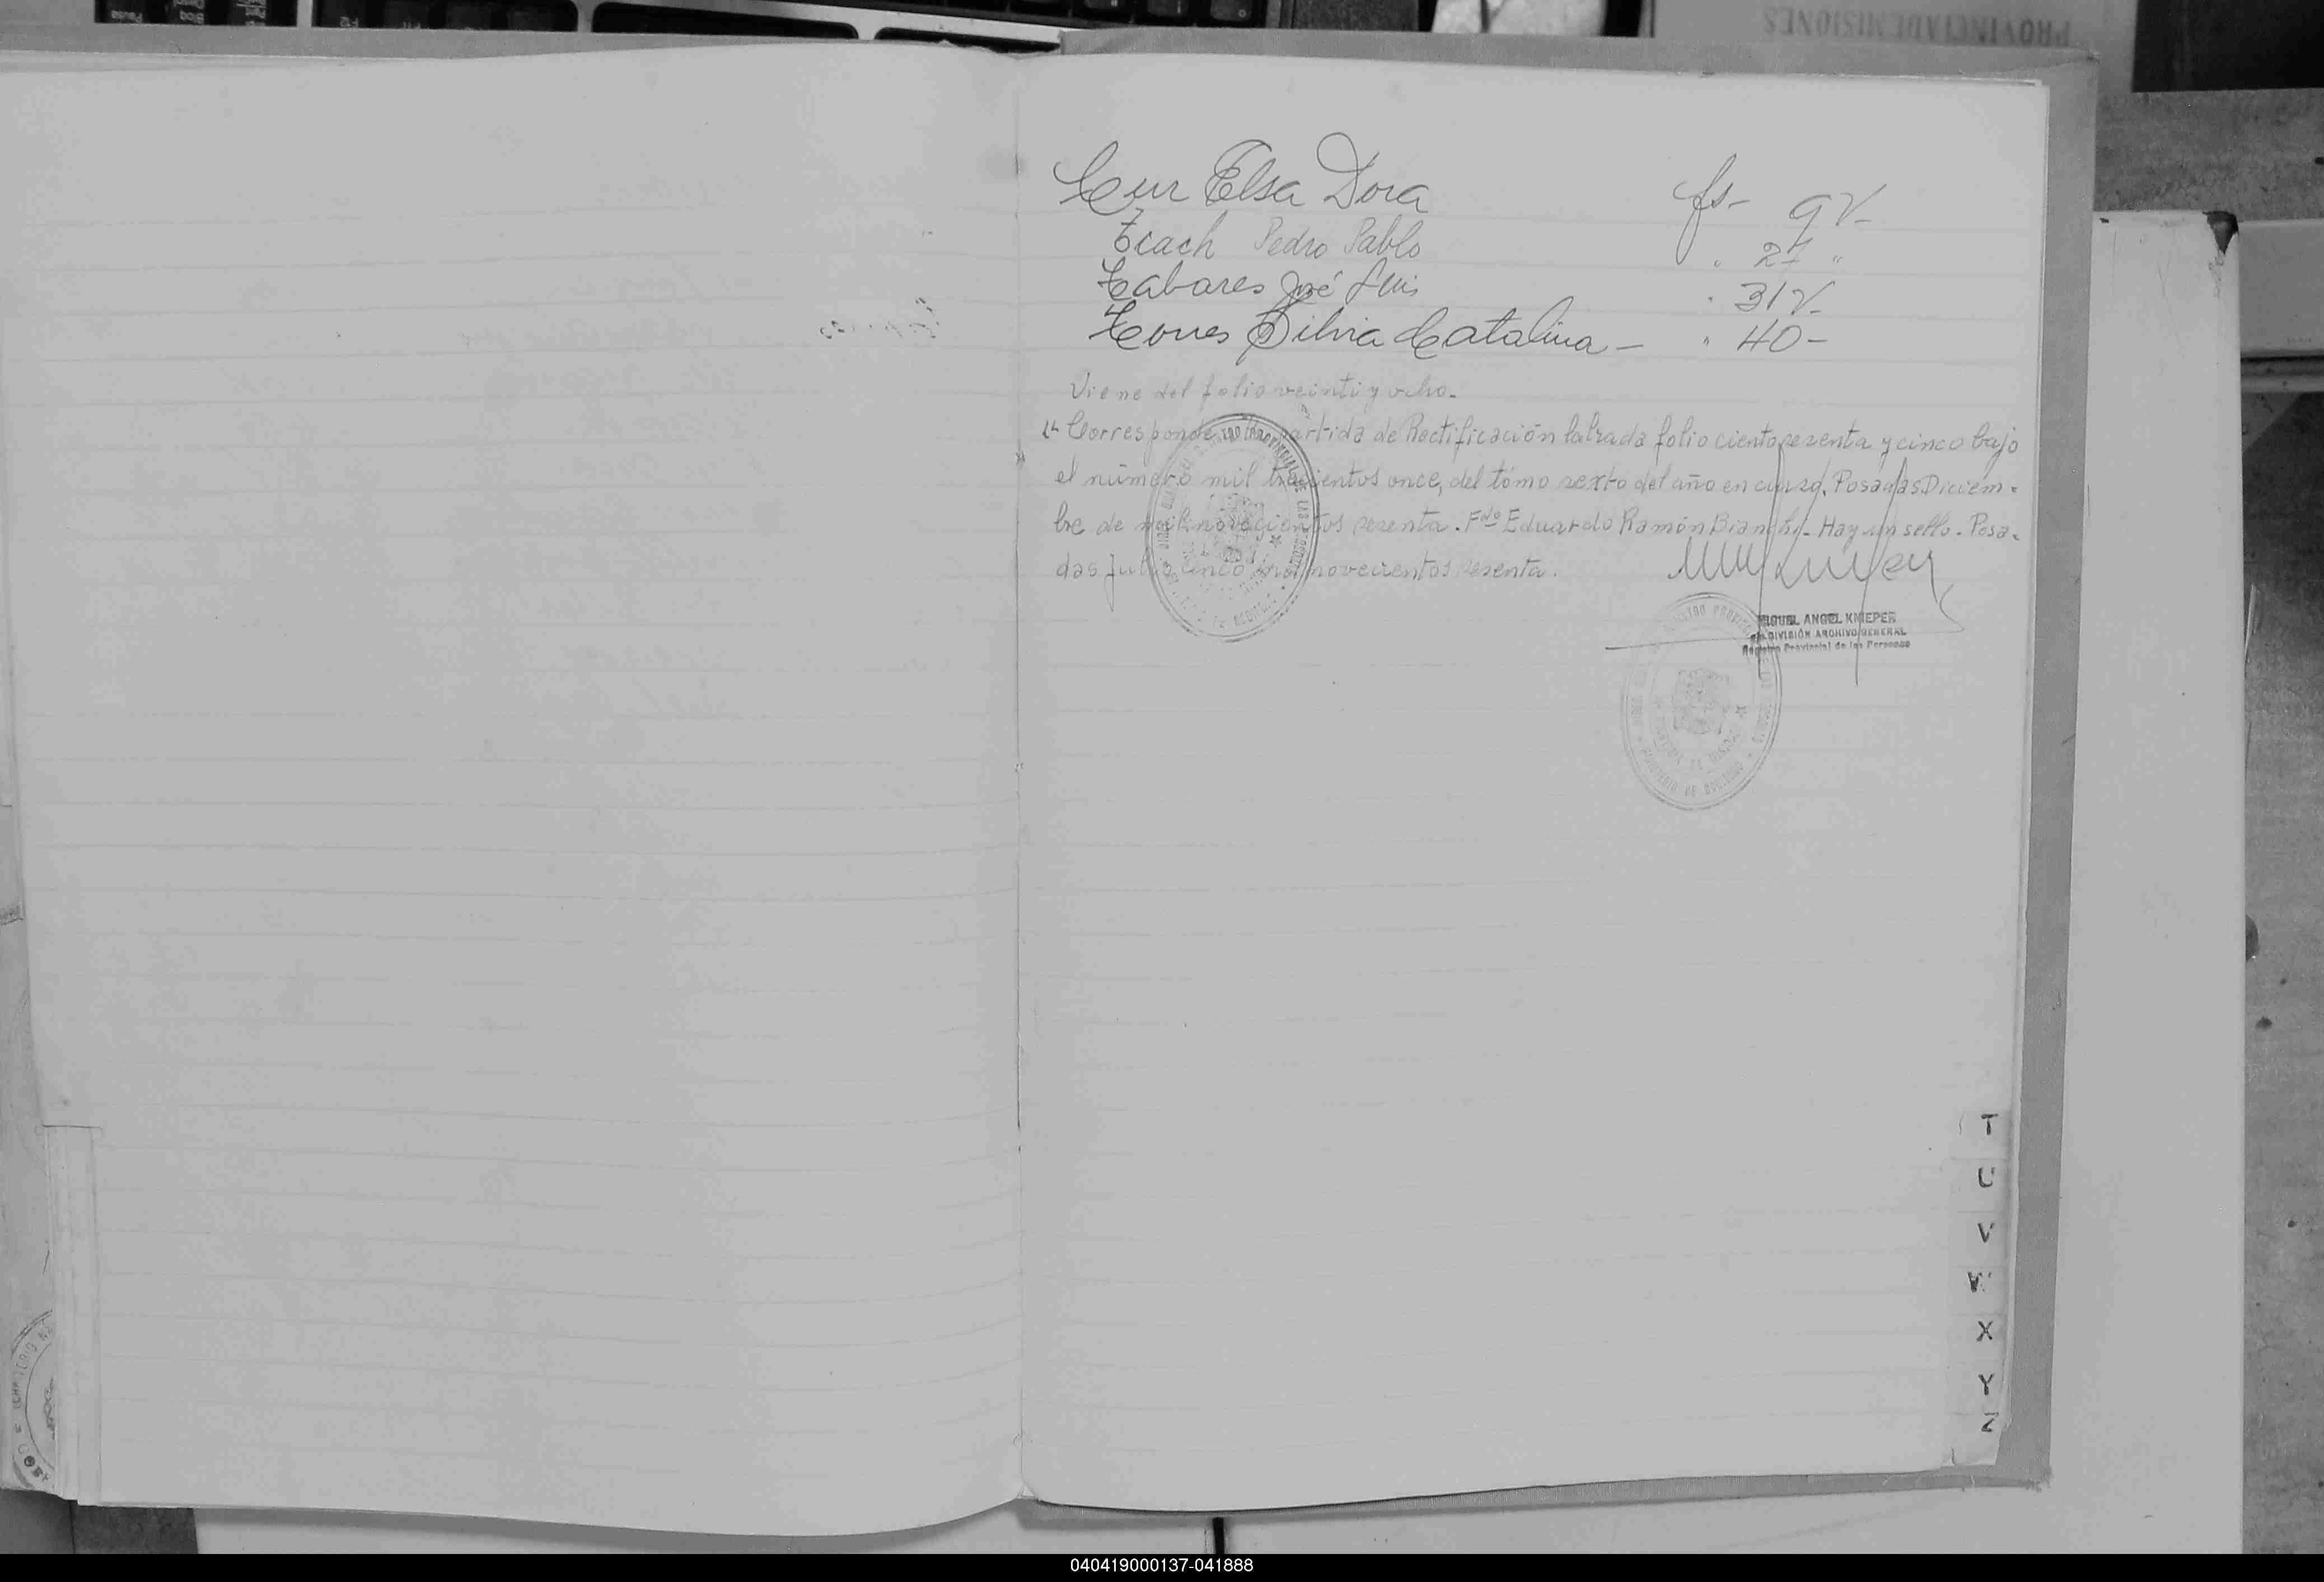 PROVINCIA DE MISIONES
Tur Elsa Dora fs- 9v-
Tcach Pedro Pablo " 27 "
Tabares José Luis " 31v-
Torres Silvia Catalina - " 40-
Viene del folio veinti y ocho.-
Corresponde partida de Rectificación labrada folio ciento sesenta y cinco bajo
el número mil trescientos once, del tomo sexto del año en curso. Posadas, Diciem-
bre de mil novecientos sesenta. Fdo Eduardo Ramón Bianchi - Hay un sello. Posa-
das Julio cinco mil novecientos sesenta.
MIGUEL ANGEL KNIEPER
DIVISIÓN ARCHIVO GENERAL
Registro Provincial de las Personas
T
U
V
W
X
Y
Z
040419000137-041888